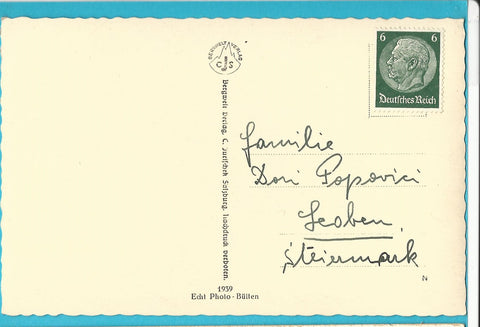 BERGWELTVERLAG
C J S
Bergwelt Verlag, C. Jurischek Salzburg. Nachdruck verboten.
1939
Echt Photo-Bütten
6 6
Deutsches Reich
Familie
Dori Popovici
Leoben
Steiermark
N